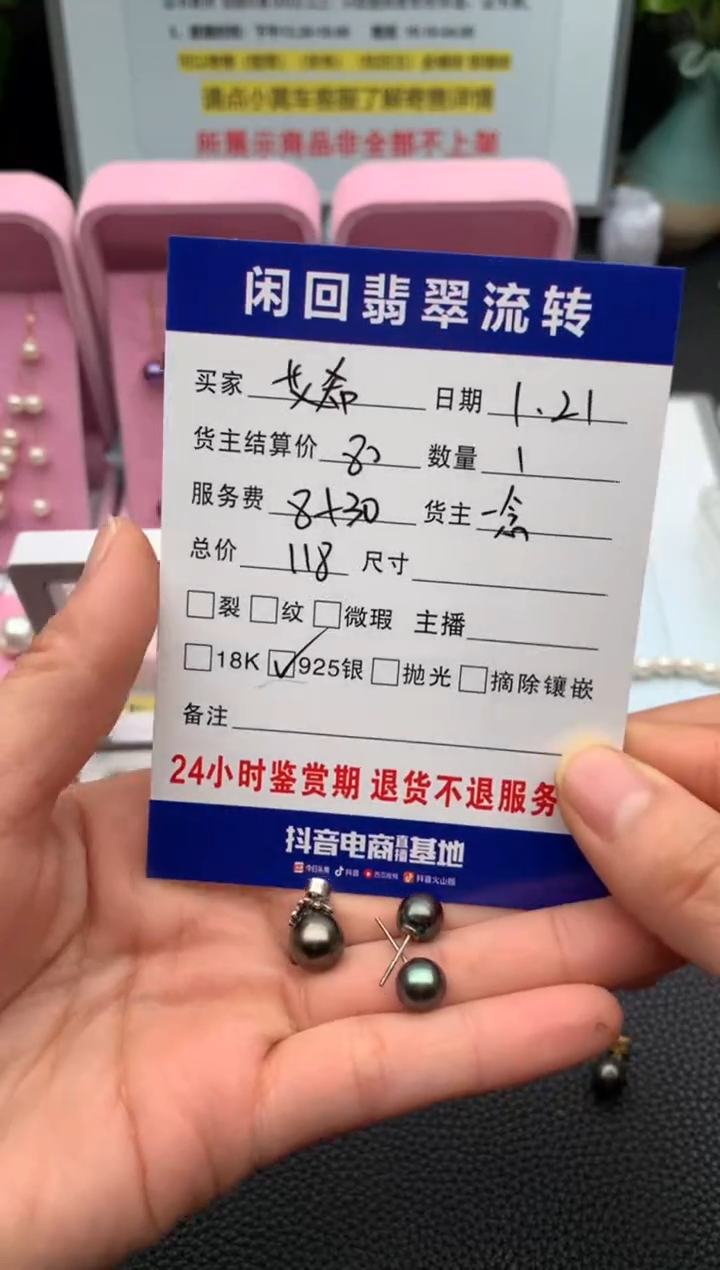 请点小黄车客服了解寄售详情
所展示商品非全部不上架
闲回翡翠流转
买家 艾希 日期 1.21
货主结算价 80 数量 1
服务费 8+30 货主 一念
总价 118 尺寸
裂 纹 微瑕 主播
18K 925银 抛光 摘除镶嵌
备注
24小时鉴赏期 退货不退服务
抖音电商直播基地
今日头条 抖音 西瓜视频 抖音火山版